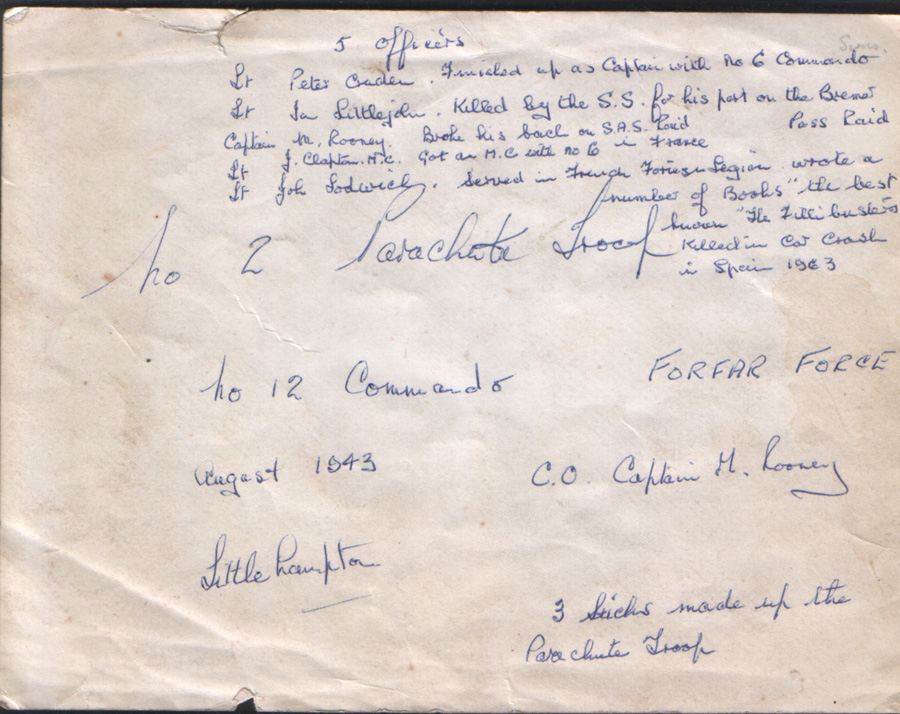 5 officers
Lt Peter . Finished up as Captain with No 6 Commando
Lt Ian Littlejohn. Killed by the S.S. for his part on the Bremer
Pass Raid
Captain M. Rooney. Broke his back on S.A.S. Raid
in France
Lt J. Clapton. M.C. Got an M.C with No 6
Lt John Lodwick. Served in French Foreign Legion. wrote a
number of Books "the best
known "The Filli busters
Killed in Car Crash
in Spain 1963
No 2 Parachute Troop
No 12 Commando
FORFAR FORCE
August 1943
C.O. Captain M. Rooney
Little hampton
3 Sticks made up the
Parachute Troop